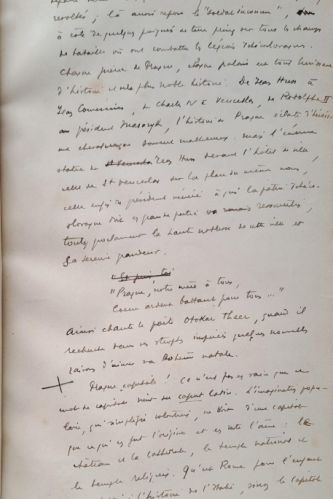 révoltés; là aussi repose le "Soldat inconnu",
à côté de quelques poignées de terre prises sur tous les champs
de bataille où ont combattu les légions tchécoslovaques.
Chaque pierre de Prague, chaque palais ne nous
d'histoire et la plus noble histoire. De Jean Huss à
Jean Comenius, de Charles IV à Venceslas, de Rodolphe II
au président Masaryk, l'histoire de Prague
chevaleresques souvent malheureux. Mais l'énorme
statue de Jean Huss devant l'hôtel de ville
celle de St Venceslas sur la place du même nom,
celle enfin du président vénéré à qui la patrie tchéco-
slovaque doit en grande partie
toutes proclament la haute noblesse de cette ville et
Sa sereine grandeur.
"Prague, notre mère à tous,
Coeur ardent battant pour tous..."
Ainsi chante le poète Otokar Theer, quand il
recherche dans ses strophes inspirées quelques nouvelles
raisons d'aimer sa Bohême natale.
Prague, capitale! Ce n'est pas en vain que ce
mot de capitale vient du caput latin. L'imagination popu-
laire, qui simplifie volontiers, ne voit d'une capitale
que ce qui en fut l'origine et en reste l'âme: le
château et la cathédrale, le temple national et
le temple religieux. Qu'est Rome pour l'
l'histoire de l'Italie, sinon le capitole